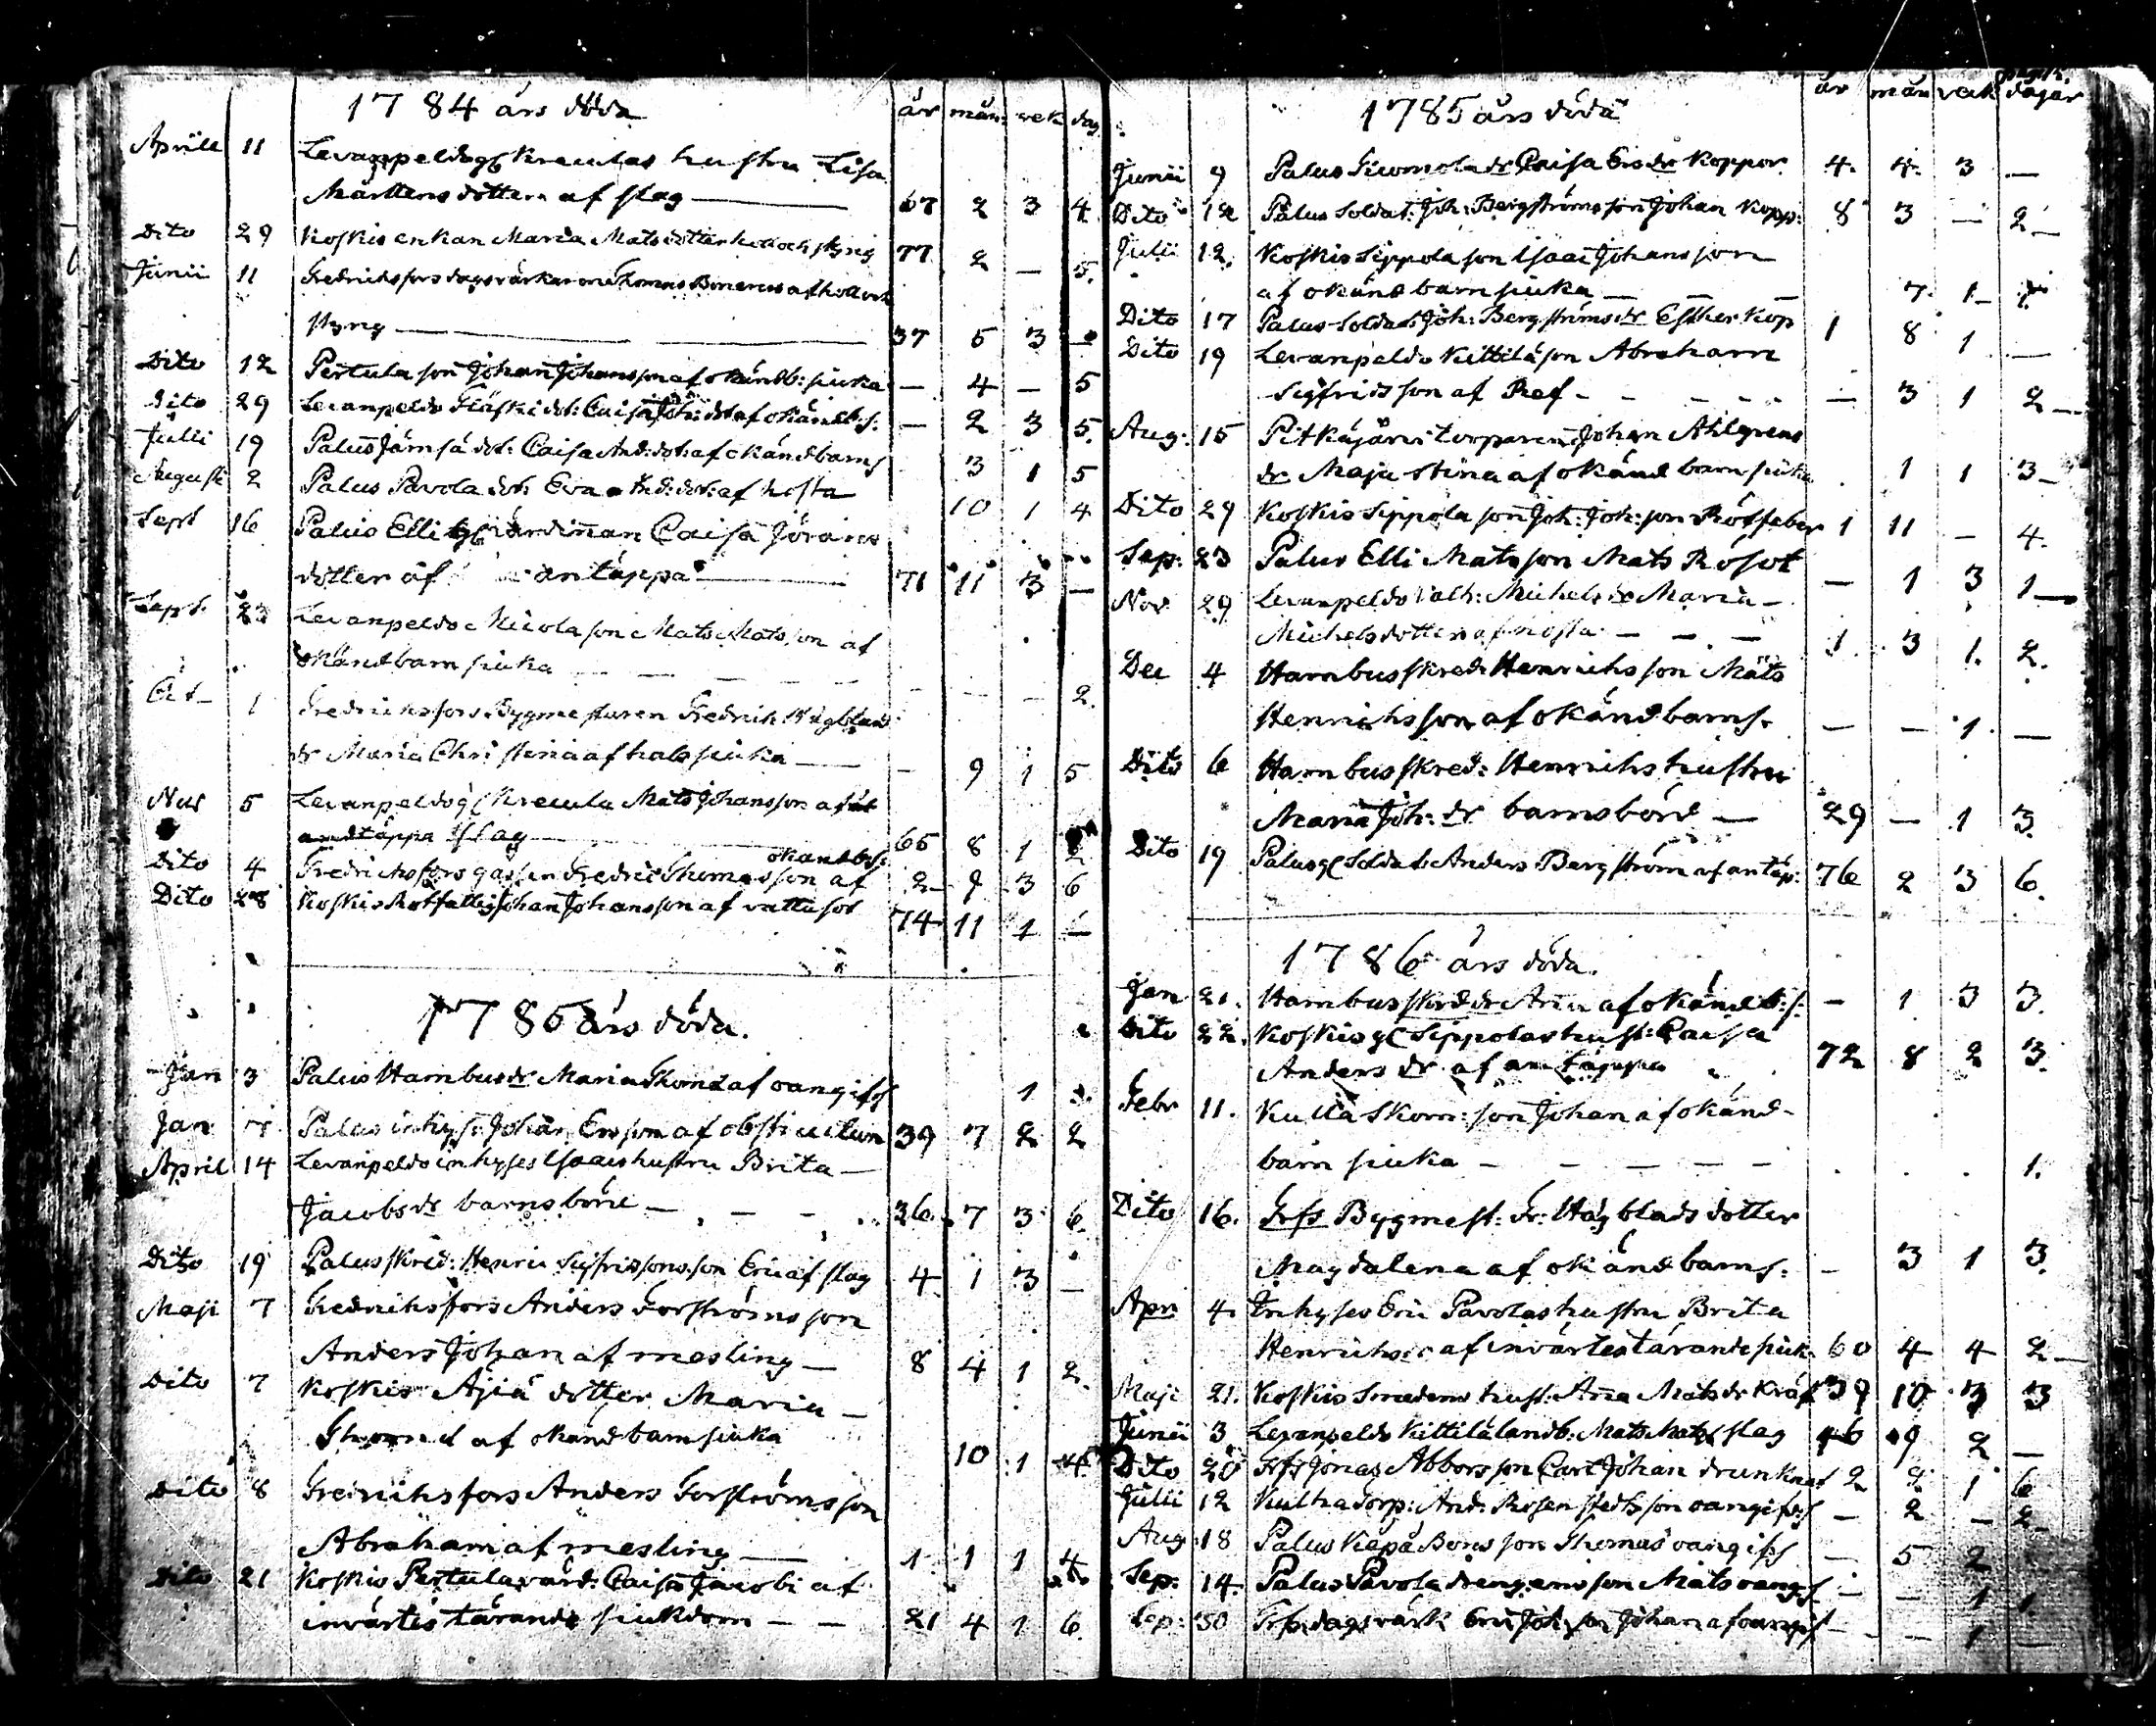 1784 års döda år mån: vek dag
Aprill 11 Levanpeldo gl Kreulas hustru Lisa
Mårttens dotter af slag — 67 2 3 4
Dito 29 Koskis enkan Maria Matsdotter håll och styng 77 2 — 5.
Junii 11 Fredrichsfors dagsvärkaren Thomas af håll och
styng — 37 5 3 —
Dito 12 Pertula son Johan Johansson af okänd b: siuka — 4 — 5
Dito 29 Levanpeldo dot: Caisa Joh: dot af okänd b:s: — 2 3 5.
Julii 19 Palus Jämsä dot: Caisa And: dot: af okänd barns 3 1 5
Augusti 2 Palus Pavola dot: Eva And: dot: af hosta 10 1 4
Sept 16 Palus Elli gl värdinnan Caisa Jörans
dotter af antäppa — 71 11 3 —
Sept. 23 Levanpeldo Nicola son Mats Matsson af
okänd barn siuka — — — — — — — 2.
Oct 1 Fredrichsfors Bygmesturen Fredrich Hägblad
dr Maria Christina af hals siuka — — 9 1 5
Nov 5 Levanpeldo gl Kreula Mats Johansson af
andtäppa slag — 65 8 1 2
okänd b:s:
Dito 4 Fredrichsfors Fredric Thomasson af 2 9 3 6
Dito 28 Koskis Rotfattig Johan Johansson af vattusot 74 11 1 —
1785 års döda.
Jan 3 Palus Hambus dr Maria Thoms d af oangifs 1
Jan 7 Palus inhys: Johan Ersson af obstruction 39 7 2 2
April 14 Levanpeldo inhyses Isaacs hustru Brita —
Jacobs dr barnsbörd — — — 36. 7 3 6.
Dito 19 Palus skred: Henric Sigfridssons son Eric af slag 4 1 3 —
Maji 7 Fredrichsfors Anders Forströms son
Anders Johan af mesling — 8 4 1 2.
Dito 7 Koskis Äjiä dotter Maria —
Thoms d af okänd barn siuka 10 1 4
Dito 8 Fredrichsfors Anders Forströms son
Abraham af mesling — 1 1 1 4
Dito 21 Koskis Pertula värd: Caisa Jacobi af
invärtes tärande siukdom — — 21 4 1 6.
1785 års döda år mån vek dagar
Junii 9 Palus dr Caisa Ers dr Koppor. 4. 4. 3 —
Dito 12 Palus Soldat: Joh: Bergströms son Johan Kopp: 8 3 — 2
Julii 12. Koskis Sippola son Isaac Johansson
af okänd barn siuka — — — 7 1
Dito 17 Palus Soldat: Joh: Bergströms dr Esther Kop 1 8 1 —
Dito 19 Levanpeldo Kittilä son Abraham
Sigfridsson af Ref — — — — 3 1 2
Aug: 15 Pitkäjärvi torparen Johan Ahlgrens
dr Maja Stina af okänd barn siuka 1 1 3
Dito 29 Koskis Sippola son Joh: Joh: son Rötfeber 1 11 — 4.
Sep: 23 Palus Elli Matsson Mats Rosot — 1 3 1
Nov 29 Levanpeldo Michels dr Maria —
Michelsdotter af hosta — — — 1 3 1. 2.
Dec 4 Hambus skred: Henrichs son Mats
Henrichsson af okänd barns. — — 1. —
Dito 6 Hambus skred: Henrichs hustru
Maria Joh: dr barnsbörd — 29 — 1 3.
Dito 19 Palus gl Soldat: Anders Bergström af antäp: 76 2 3 6.
1786 års döda.
Jan 21. Hambus skred dr Anna af okänd b:s: — 1 3 3.
Dito 22. Koskis gl Sippolas hust: Caisa
Anders dr af antäppa 72 8 2 3.
Febr 11. Kulla Skom: son Johan af okänd
barn siuka — — — — — 1.
Dito 16. Frfs Bygmest: Fr: Hägblads dotter
Magdalena af okänd barns: — 3 1 3.
Apri 4. Inhyses Eric Pavolas hustru Brita
Henrichs dr af invärtes tärande siuk: 60 4 4 2
Maji 21. Koskis Smedens hust: Anna Mats dr Kräf 39 10 3 3
Junii 3 Levanpeldo Kittilä landb: Mats Mats slag 46 9 2 —
Dito 20 Frfs Jonas Abbors son Carl Johan drunknat 2 2 1 6
Julii 12 Kultha torp: And: Rosenstedts son oangifs:s — 2 — 2
Aug 18 Palus Käpä Boms son Thomas oangifs — 5 2
Sep: 14. Palus Pavola drengens son Mats oang:s — — 1 1.
Sep: 30 Frfs dagsvärk Eric Joh: son Johan af oangif — — 1 —